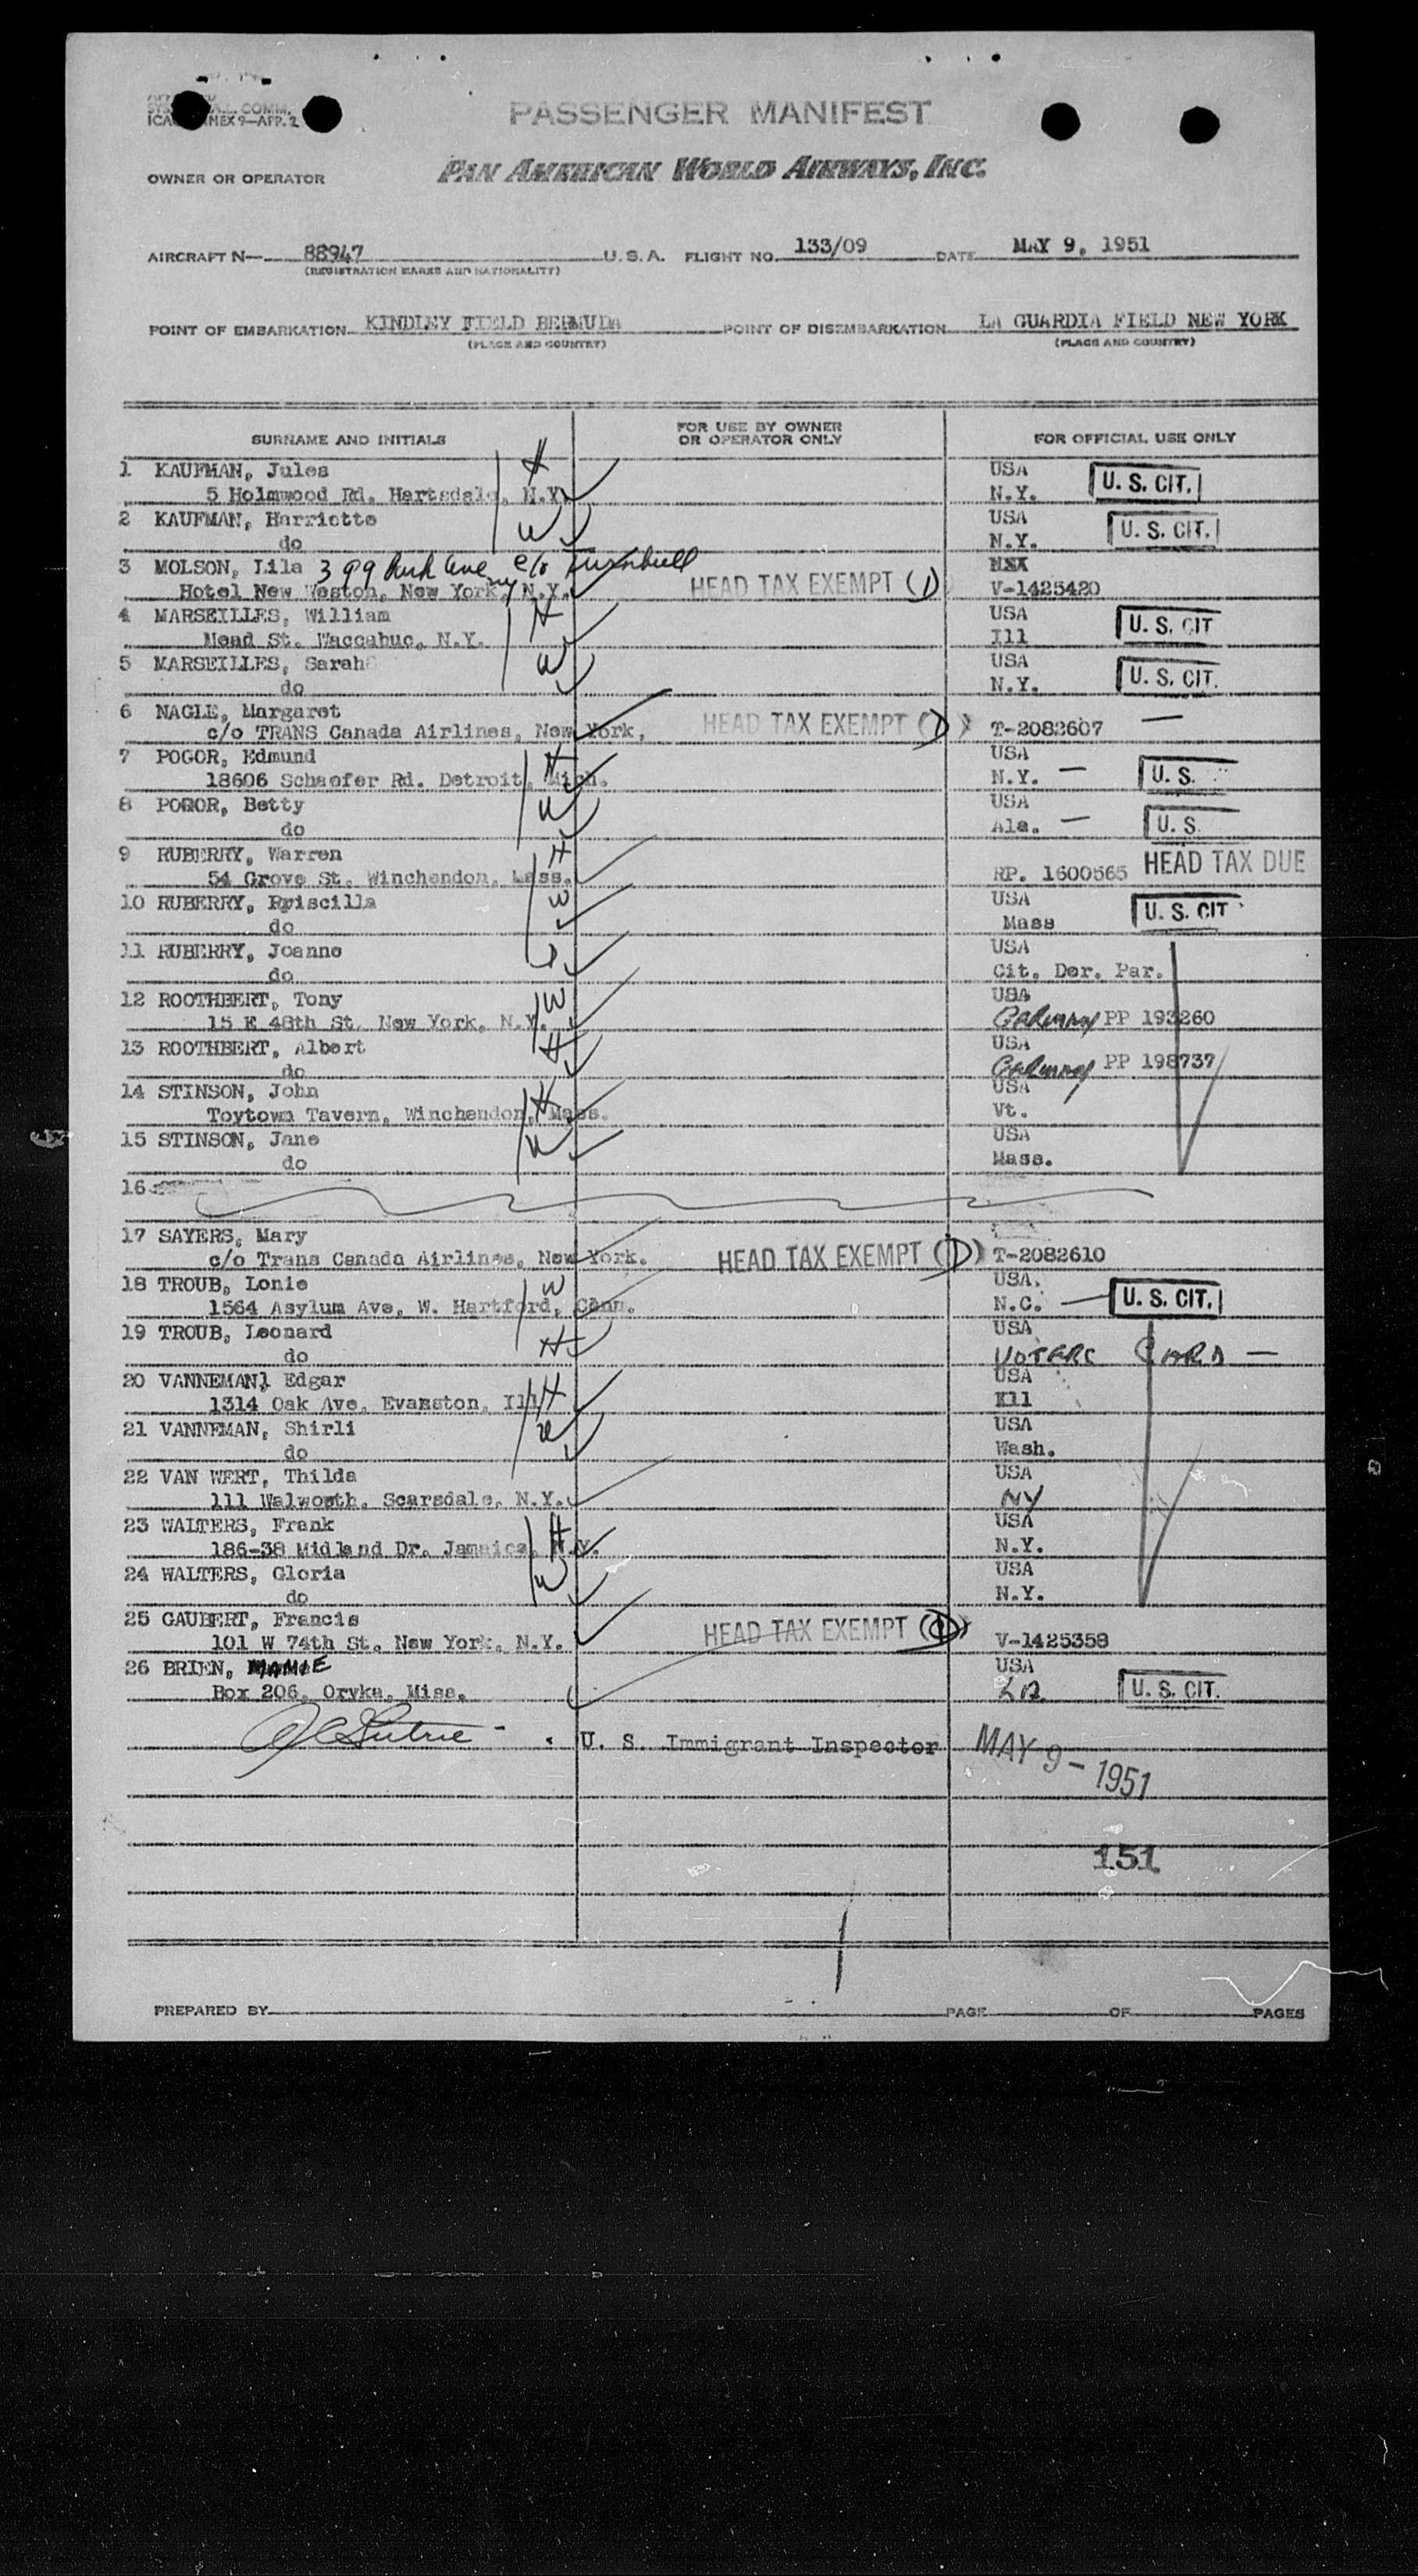 A.L. COMM.
ICA ANNEX 9—APP. 2
PASSENGER MANIFEST
OWNER OR OPERATOR PAN AMERICAN WORLD AIRWAYS, INC.
AIRCRAFT N— 88947 U.S.A. FLIGHT NO. 133/09 DATE MAY 9, 1951
(REGISTRATION MARKS AND NATIONALITY)
POINT OF EMBARKATION KINDLEY FIELD BERMUDA POINT OF DISEMBARKATION LA GUARDIA FIELD NEW YORK
(PLACE AND COUNTRY) (PLACE AND COUNTRY)
SURNAME AND INITIALS FOR USE BY OWNER OR OPERATOR ONLY FOR OFFICIAL USE ONLY
1 KAUFMAN, Jules H USA
5 Holmwood Rd. Hartsdale, N.Y. N.Y. U. S. CIT.
2 KAUFMAN, Harriette W USA
do N.Y. U. S. CIT.
3 MOLSON, Lila 399 Park Ave NY c/o Turnbull
Hotel New Weston, New York, N.Y. HEAD TAX EXEMPT (1) V-1425420
4 MARSEILLES, William H USA
Mead St. Waccabuc, N.Y. Ill U. S. CIT
5 MARSEILLES, Sarah W USA
do N.Y. U. S. CIT.
6 NAGLE, Margaret
c/o TRANS Canada Airlines, New York, HEAD TAX EXEMPT (1) T-2082607
7 POGOR, Edmund H USA
18606 Schaefer Rd. Detroit, Mich. N.Y. — U. S.
8 POGOR, Betty W USA
do Ala. — U. S.
9 RUBERRY, Warren H
54 Grove St. Winchendon, Mass. RP. 1600565 HEAD TAX DUE
10 RUBERRY, Rpiscilla W USA
do Mass U. S. CIT
11 RUBERRY, Joanne USA
do Cit. Der. Par.
12 ROOTHBERT, Tony W USA
15 E 48th St. New York, N.Y. Germany PP 193260
13 ROOTHBERT, Albert H USA
do Germany PP 198737
14 STINSON, John H USA
Toytown Tavern, Winchendon, Mass. Vt.
15 STINSON, Jane W USA
do Mass.
16
17 SAYERS, Mary
c/o Trans Canada Airlines, New York. HEAD TAX EXEMPT (1) T-2082610
18 TROUB, Lonie W USA.
1564 Asylum Ave, W. Hartford, Conn. N.C. — U. S. CIT.
19 TROUB, Leonard H USA
do VOTERS CARD —
20 VANNEMAN, Edgar H USA
1314 Oak Ave, Evanston, Ill Ill
21 VANNEMAN, Shirli W USA
do Wash.
22 VAN WERT, Thilda USA
111 Walworth, Scarsdale, N.Y. NY
23 WALTERS, Frank H USA
186-38 Midland Dr. Jamaica, N.Y. N.Y.
24 WALTERS, Gloria W USA
do N.Y.
25 GAUBERT, Francis
101 W 74th St. New York, N.Y. HEAD TAX EXEMPT (1) V-1425358
26 BRIEN, MAMIE USA
Box 206, Oryka, Miss. LA U. S. CIT.
U. S. Immigrant Inspector MAY 9 - 1951
151
PREPARED BY PAGE OF PAGES